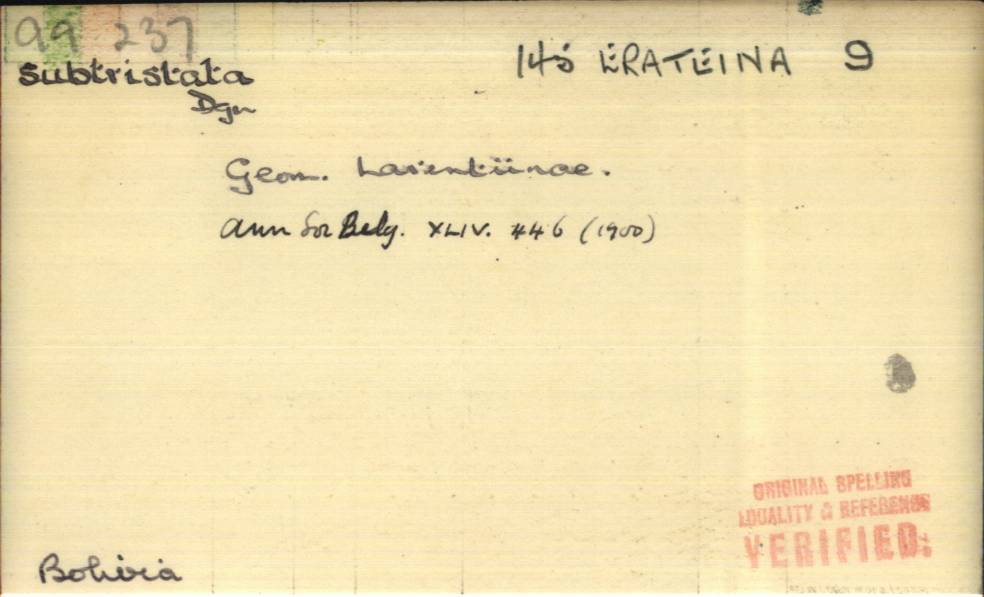 99 237
subtristata
Dgn
145 ERATEINA 9
Geom. Larentiinae.
Ann Soc Belg. XLIV. 446 (1900)
ORIGINAL SPELLING
LOCALITY & REFERENCE
VERIFIED.
Bolivia